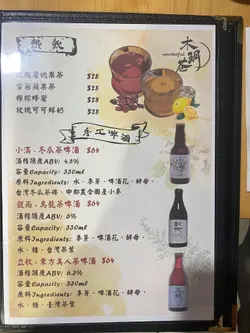 熱飲
大鍋
wonderful
玫瑰蜜桃果茶 $25
宮廟蘋果茶 $25
檸檬蜂蜜 $25
玫瑰可可鮮奶 $25
手工啤酒
小滿．冬瓜茶啤酒 $64
酒精濃度ABV: 4.5%
容量Capacity: 330ml
原料Ingredients: 水．麥芽．啤酒花．酵母．
台灣冬瓜茶磚
穀雨．烏龍茶啤酒 $64
酒精濃度ABV: 6%
容量Capacity: 330ml
原料Ingredients: 麥芽．啤酒花．酵母．
水．糖．台灣茶葉
立秋．東方美人茶啤酒 $64
酒精濃度ABV: 6.3%
容量Capacity: 330ml
原料Ingredients: 麥芽．啤酒花．酵母．
水．糖．臺灣茶葉